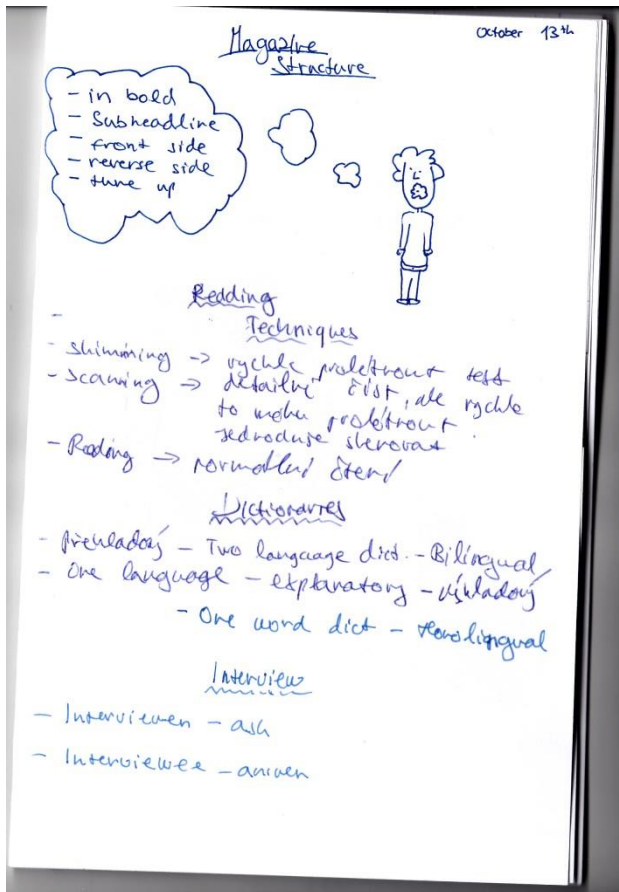 October 13th
Magazine
Structure
- in bold
- Subheadline
- front side
- reverse side
- tune up
Reading
Techniques
-
- skimming -> rychle prolétnout text
- Scanning -> detailní číst, ale rychle
to mohu prolétnout
jednoduše
- Reading -> normální čtení
Dictionaries
- překladový - Two language dict. - Bilingual
- One language - explanatory - výkladový
- One word dict - Monolingual
Interview
- Interviewer - ask
- Interviewee - answer